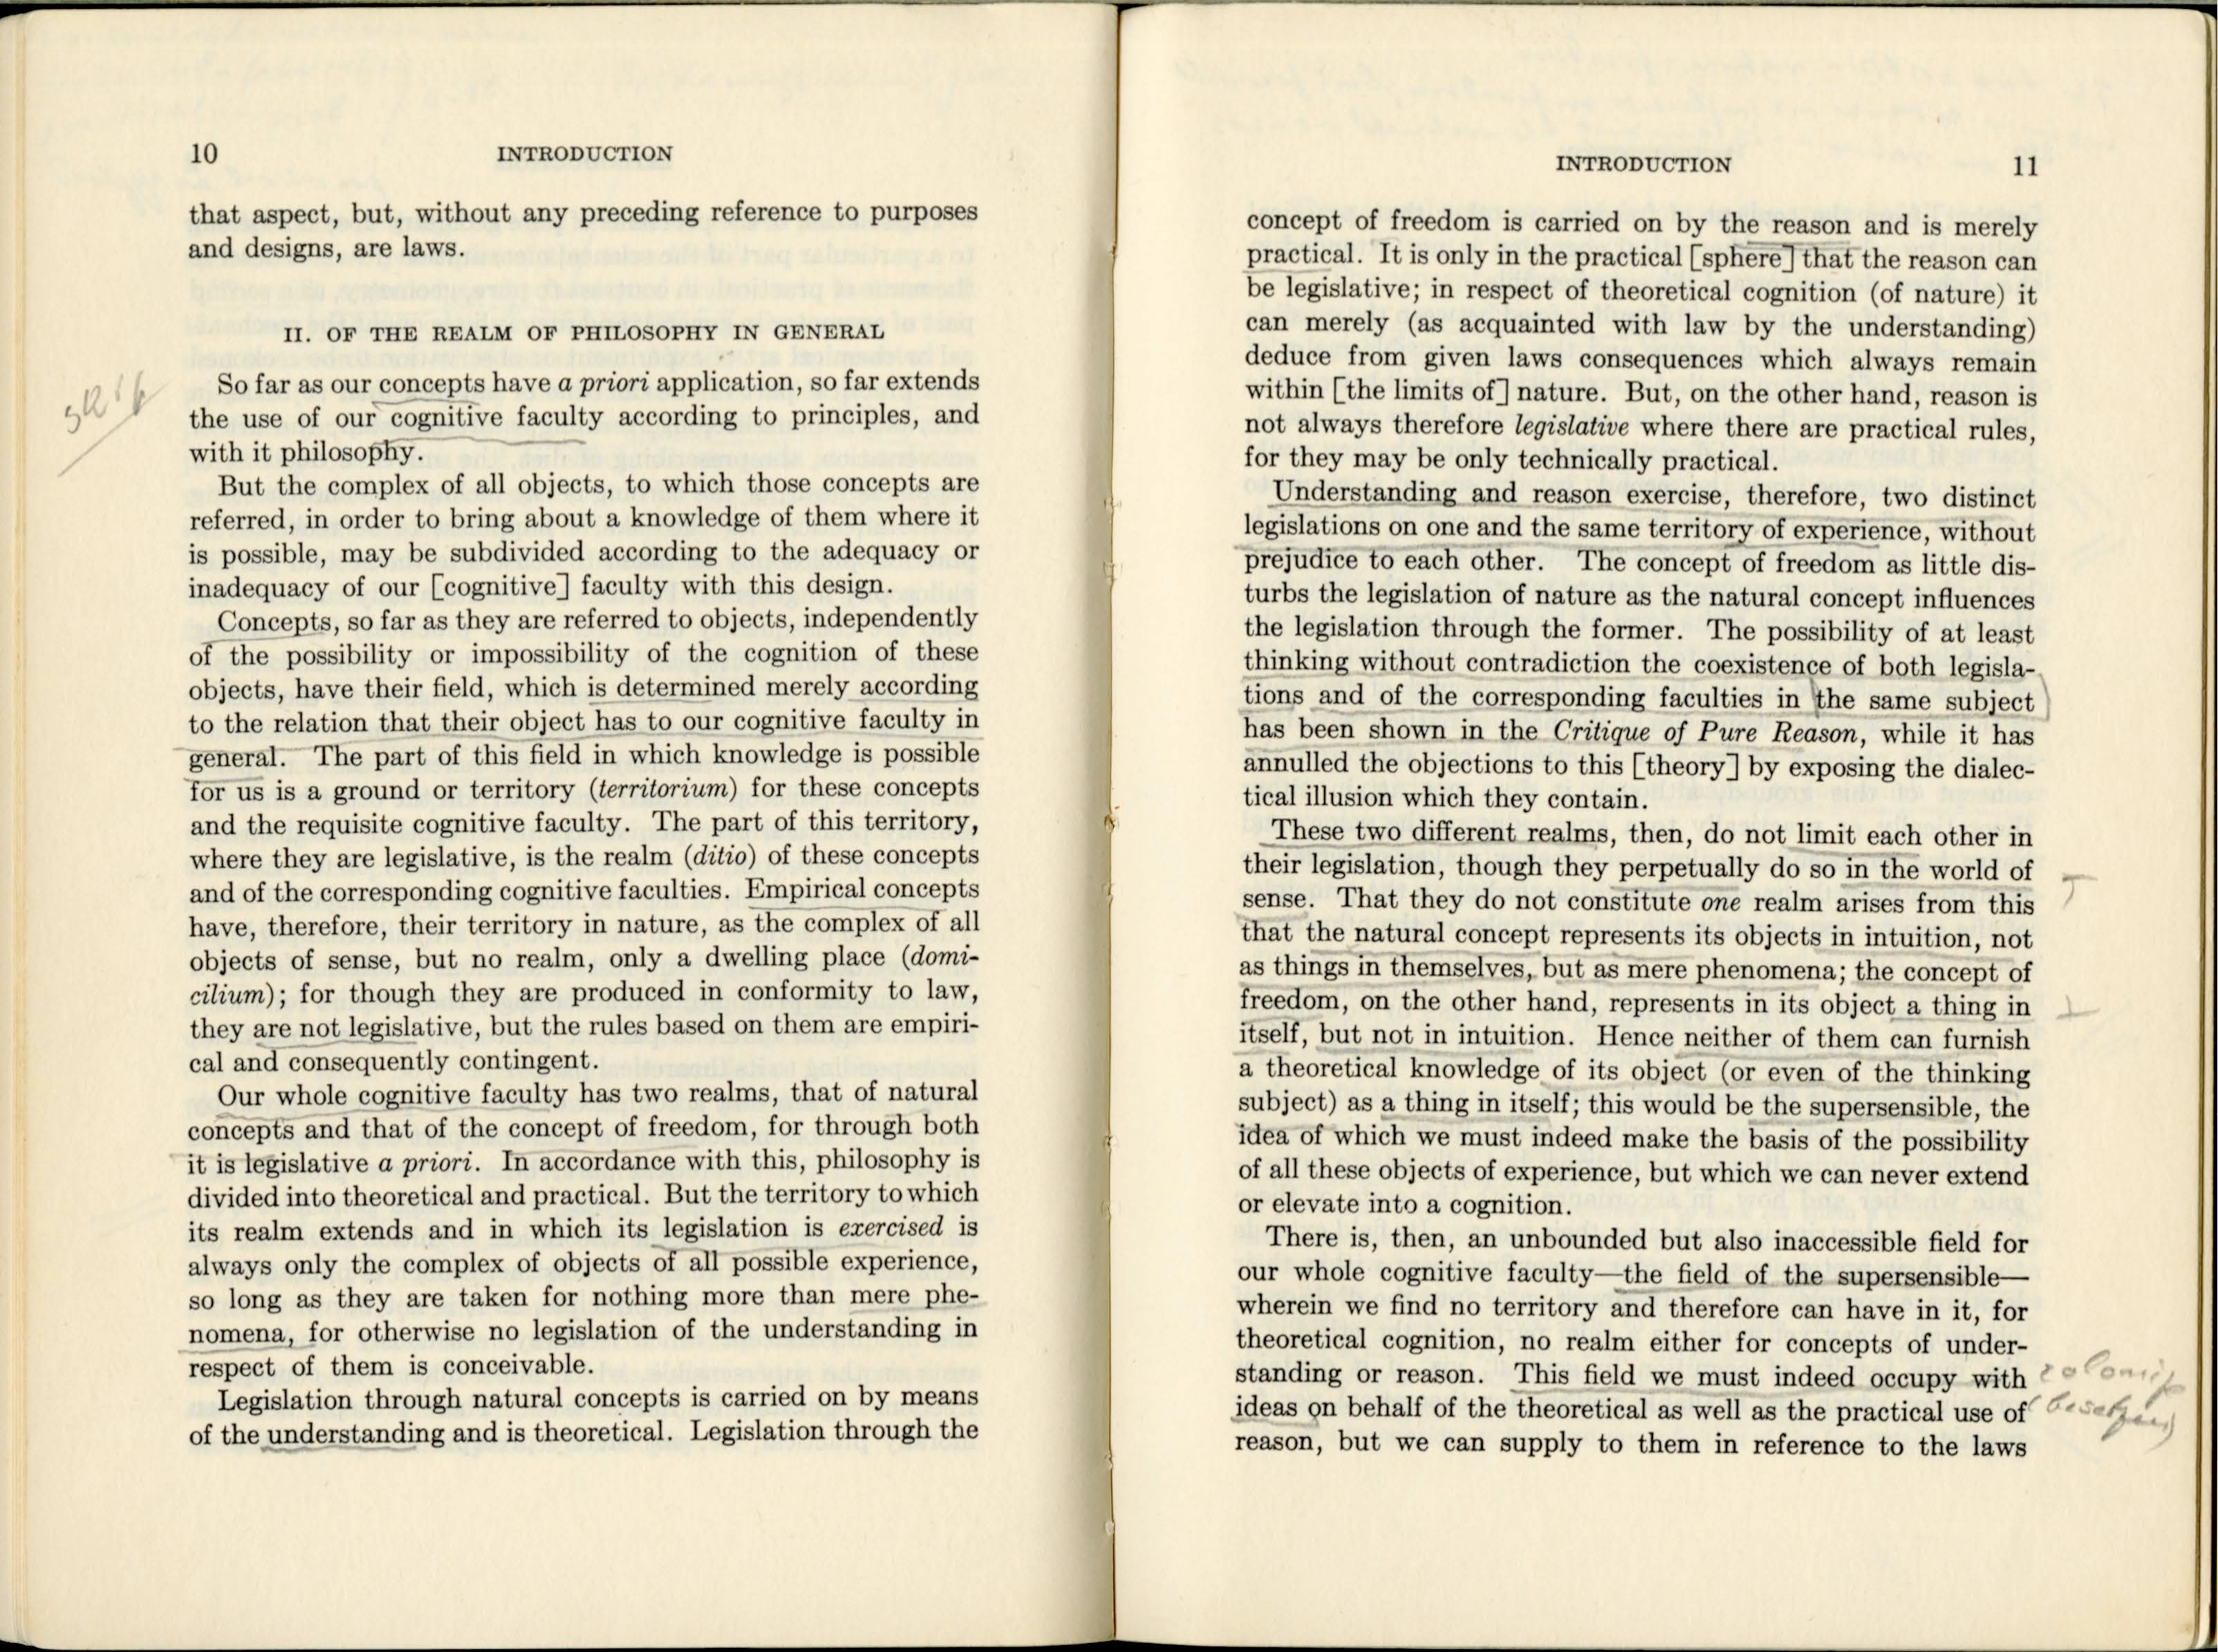 10
INTRODUCTION
that aspect, but, without any preceding reference to purposes
and designs, are laws.
II. OF THE REALM OF PHILOSOPHY IN GENERAL
So far as our concepts have a priori application, so far extends
the use of our cognitive faculty according to principles, and
with it philosophy.
But the complex of all objects, to which those concepts are
referred, in order to bring about a knowledge of them where it
is possible, may be subdivided according to the adequacy or
inadequacy of our [cognitive] faculty with this design.
Concepts, so far as they are referred to objects, independently
of the possibility or impossibility of the cognition of these
objects, have their field, which is determined merely according
to the relation that their object has to our cognitive faculty in
general. The part of this field in which knowledge is possible
for us is a ground or territory (territorium) for these concepts
and the requisite cognitive faculty. The part of this territory,
where they are legislative, is the realm (ditio) of these concepts
and of the corresponding cognitive faculties. Empirical concepts
have, therefore, their territory in nature, as the complex of all
objects of sense, but no realm, only a dwelling place (domi-
cilium); for though they are produced in conformity to law,
they are not legislative, but the rules based on them are empiri-
cal and consequently contingent.
Our whole cognitive faculty has two realms, that of natural
concepts and that of the concept of freedom, for through both
it is legislative a priori. In accordance with this, philosophy is
divided into theoretical and practical. But the territory to which
its realm extends and in which its legislation is exercised is
always only the complex of objects of all possible experience,
so long as they are taken for nothing more than mere phe-
nomena, for otherwise no legislation of the understanding in
respect of them is conceivable.
Legislation through natural concepts is carried on by means
of the understanding and is theoretical. Legislation through the
INTRODUCTION
11
concept of freedom is carried on by the reason and is merely
practical. It is only in the practical [sphere] that the reason can
be legislative; in respect of theoretical cognition (of nature) it
can merely (as acquainted with law by the understanding)
deduce from given laws consequences which always remain
within [the limits of] nature. But, on the other hand, reason is
not always therefore legislative where there are practical rules,
for they may be only technically practical.
Understanding and reason exercise, therefore, two distinct
legislations on one and the same territory of experience, without
prejudice to each other. The concept of freedom as little dis-
turbs the legislation of nature as the natural concept influences
the legislation through the former. The possibility of at least
thinking without contradiction the coexistence of both legisla-
tions and of the corresponding faculties in the same subject
has been shown in the Critique of Pure Reason, while it has
annulled the objections to this [theory] by exposing the dialec-
tical illusion which they contain.
These two different realms, then, do not limit each other in
their legislation, though they perpetually do so in the world of
sense. That they do not constitute one realm arises from this
that the natural concept represents its objects in intuition, not
as things in themselves, but as mere phenomena; the concept of
freedom, on the other hand, represents in its object a thing in
itself, but not in intuition. Hence neither of them can furnish
a theoretical knowledge of its object (or even of the thinking
subject) as a thing in itself; this would be the supersensible, the
idea of which we must indeed make the basis of the possibility
of all these objects of experience, but which we can never extend
or elevate into a cognition.
There is, then, an unbounded but also inaccessible field for
our whole cognitive faculty—the field of the supersensible—
wherein we find no territory and therefore can have in it, for
theoretical cognition, no realm either for concepts of under-
standing or reason. This field we must indeed occupy with
ideas on behalf of the theoretical as well as the practical use of
(besetzen)
reason, but we can supply to them in reference to the laws